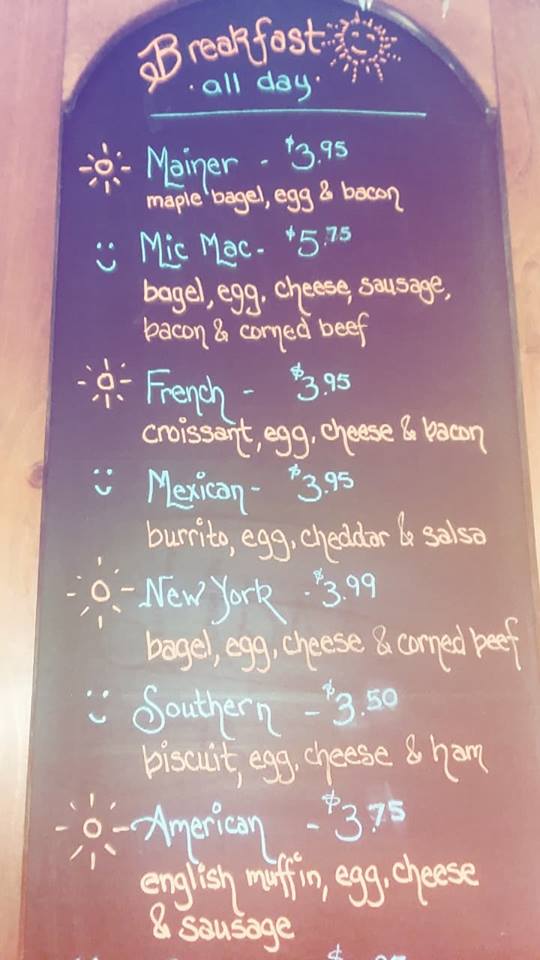 Breakfast
· all day ·
Mainer - $3.95
maple bagel, egg & bacon
Mic Mac - $5.75
bagel, egg, cheese, sausage,
bacon & corned beef
French - $3.95
croissant, egg, cheese & bacon
Mexican - $3.95
burrito, egg, cheddar & salsa
New York - $3.99
bagel, egg, cheese & corned beef
Southern - $3.50
biscuit, egg, cheese & ham
American - $3.75
english muffin, egg, cheese
& sausage